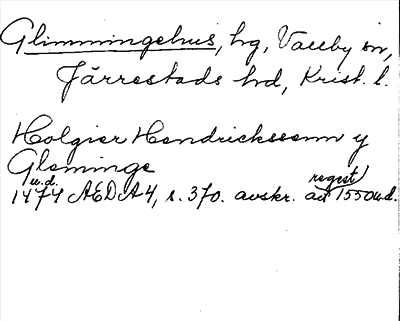 Glimmingehus, hg, Vallby sn,
Järrestads hd, Krist. l.
Holgier Hendrickssenn y
Gleminge
u.d.
1474 AEDA 4, s. 370. avskr. av regest 1550 u.d.